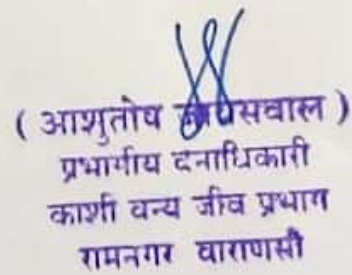 ( आशुतोष जायसवाल )
प्रभागीय वनाधिकारी
काशी वन्य जीव प्रभाग
रामनगर वाराणसी